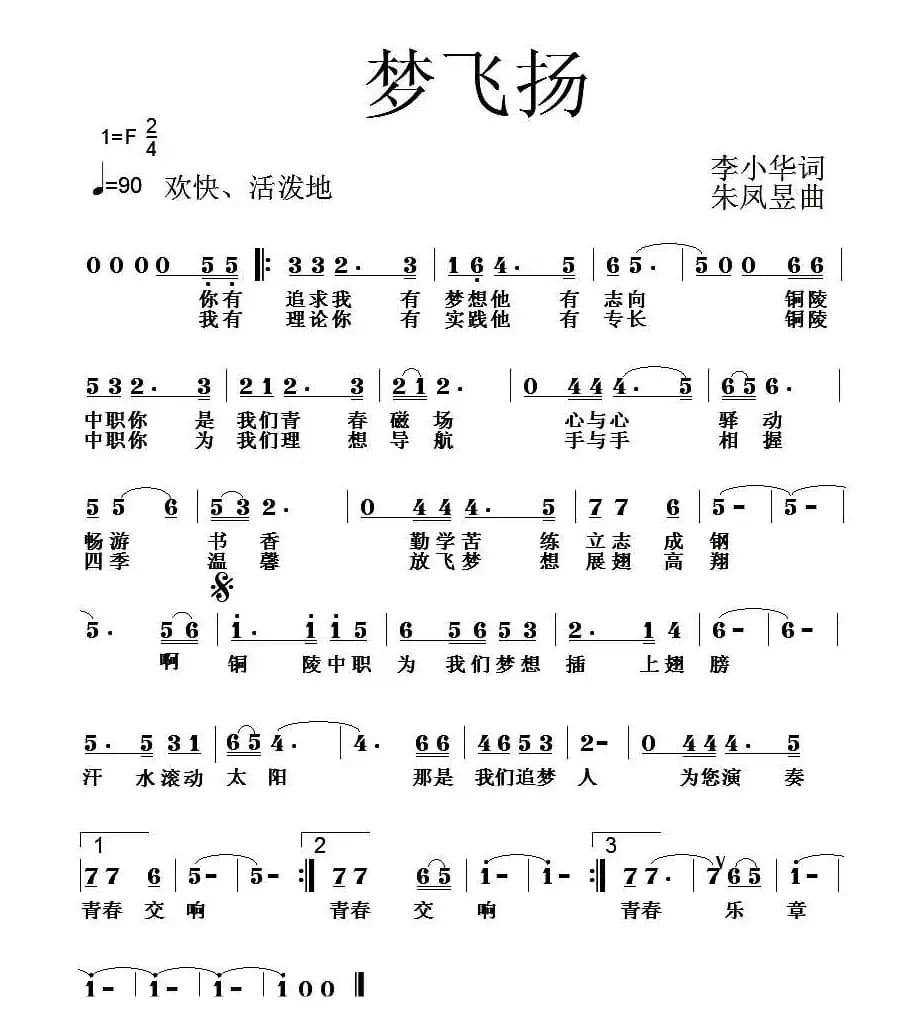 梦飞扬
1=F 2/4
♩=90 欢快、活泼地
李小华词
朱凤昱曲
0 0 0 0 5 5 ‖: 3 3 2· 3 | 1 6 4· 5 | 6 5· | 5 0 0 6 6 |
你有 追求我 有 梦想他 有 志向 铜陵
我有 理论你 有 实践他 有 专长 铜陵
5 3 2· 3 | 2 1 2· 3 | 2 1 2· | 0 4 4 4· 5 | 6 5 6· |
中职你 是 我们青 春 磁 场 心与心 驿 动
中职你 为 我们理 想 导 航 手与手 相 握
5 5 6 | 5 3 2· | 0 4 4 4· 5 | 7 7 6 | 5 - | 5 - |
畅游 书 香 勤学苦 练 立志 成 钢
四季 温 馨 放飞梦 想 展翅 高 翔
5· 5 6 | 1· 1 1 5 | 6 5 6 5 3 | 2· 1 4 | 6 - | 6 - |
啊 铜 陵中职 为 我们梦想 插 上翅 膀
5· 5 3 1 | 6 5 4· | 4· 6 6 | 4 6 5 3 | 2 - | 0 4 4 4· 5 |
汗 水滚动 太 阳 那是 我们追梦 人 为您演 奏
1 2 3
7 7 6 | 5 - | 5 - :‖ 7 7 6 5 | 1 - | 1 - :‖ 7 7· | 7 6 5 | 1 - |
青春 交 响 青春 交 响 青春 乐 章
1 - | 1 - | 1 - | 1 0 0 ‖